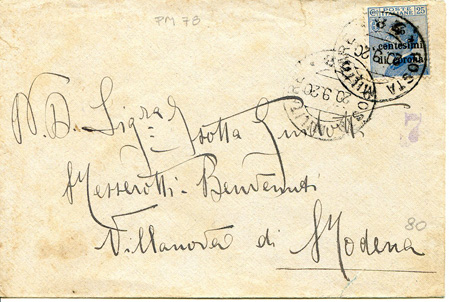 PM 78
POSTE ITALIANE 25
25 centesimi
di corona
POSTA MILITARE
20.9.20
N. D. Sig.ra Isotta
Messerotti-Benvenuti
Villanova di Modena
7
80